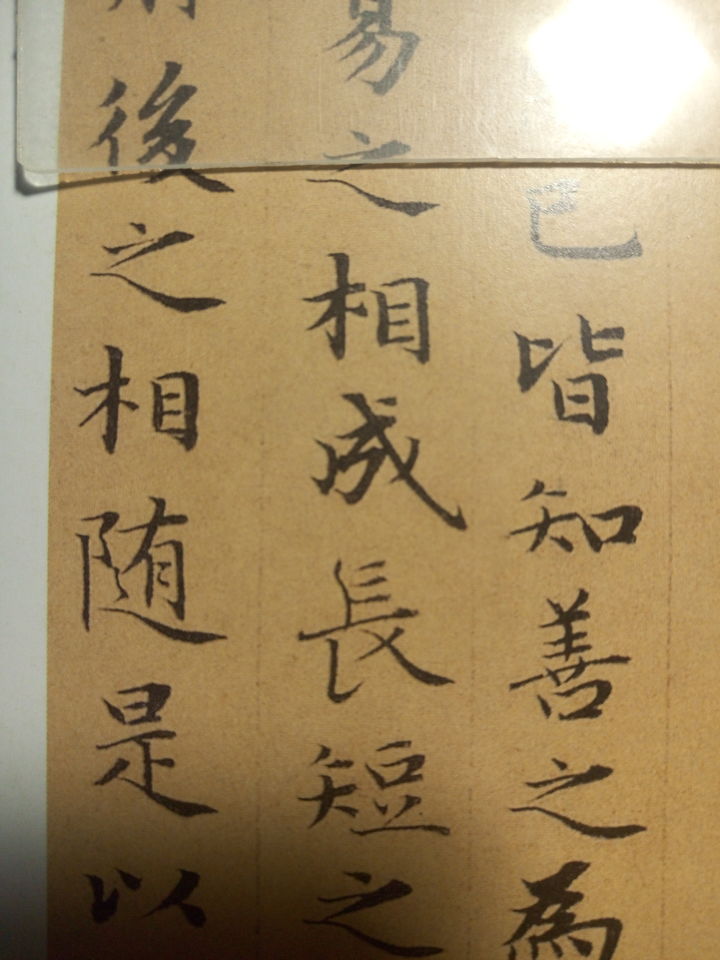 已皆知善之為
易之相成長短之
前後之相随是以